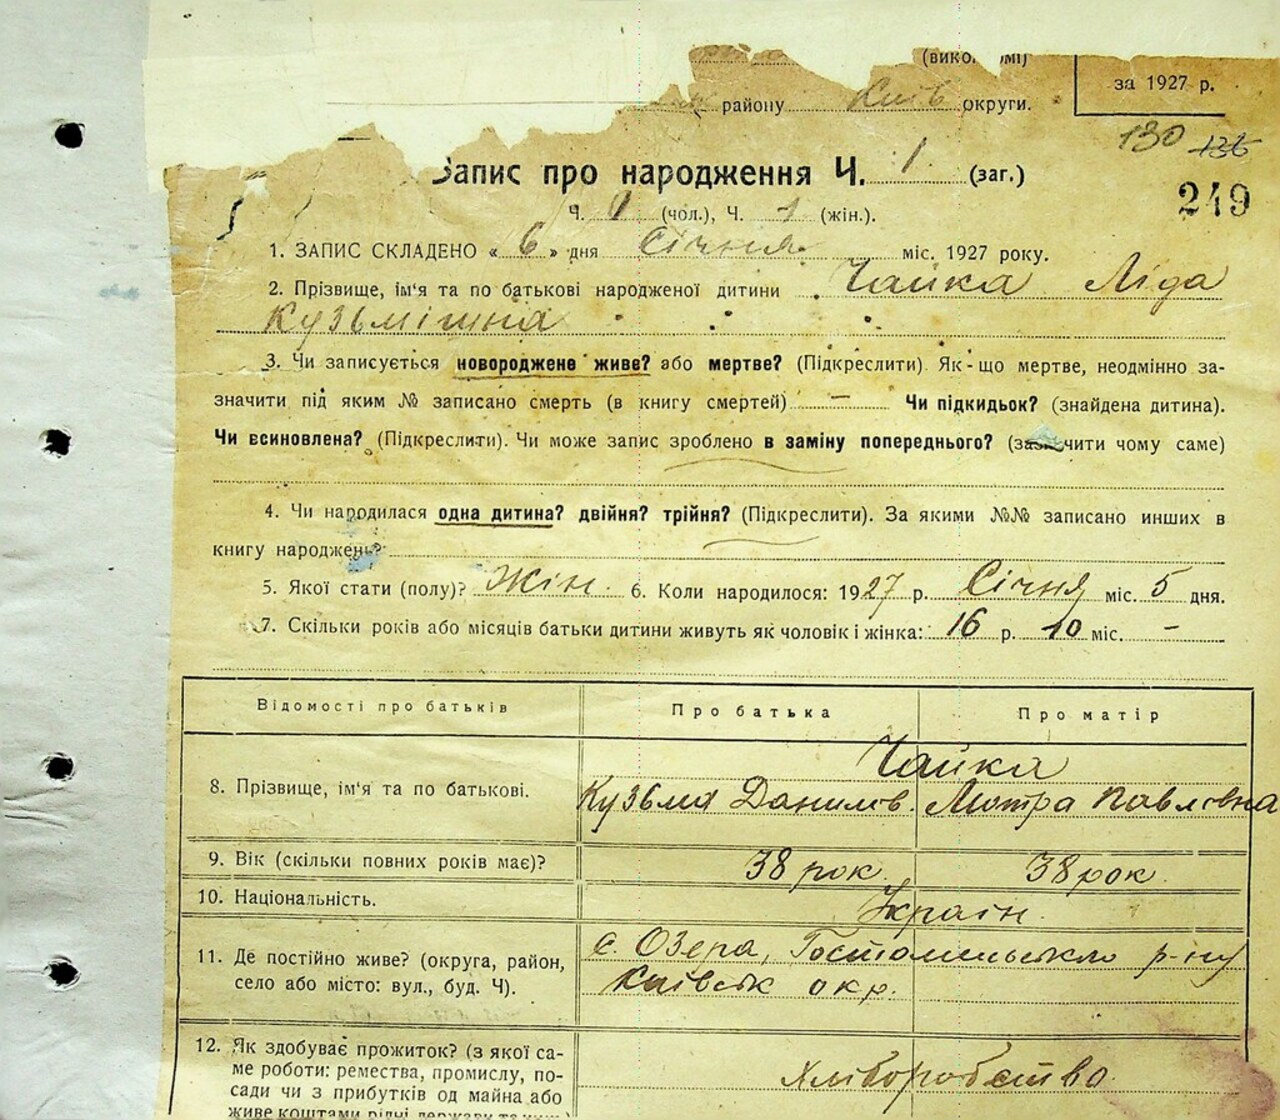 за 1927 р.
району Київ округи.
130 136
Запис про народження Ч. 1 (заг.)
249
Ч. (чол.), Ч. 1 (жін.).
1. ЗАПИС СКЛАДЕНО « 6 » дня Січня міс. 1927 року.
2. Прізвище, ім'я та по батькові народженої дитини Чайка Ліда
Кузьмішна
3. Чи записується новороджене живе? або мертве? (Підкреслити). Як-що мертве, неодмінно за-
значити під яким № записано смерть (в книгу смертей) — Чи підкидьок? (знайдена дитина).
Чи всиновлена? (Підкреслити). Чи може запис зроблено в заміну попереднього? (зазначити чому саме)
4. Чи народилася одна дитина? двійня? трійня? (Підкреслити). За якими №№ записано инших в
книгу народжень?
5. Якої стати (полу)? Жін. 6. Коли народилося: 1927 р. Січня міс. 5 дня.
7. Скільки років або місяців батьки дитини живуть як чоловік і жінка: 16 р. 10 міс. —
Відомості про батьків Про батька Про матір
Чайка
8. Прізвище, ім'я та по батькові. Кузьма Данилов. Мотра Павловна
9. Вік (скільки повних років має)? 38 рок. 38 рок.
10. Національність. Україн.
11. Де постійно живе? (округа, район, с. Озера, Гостомельсько р-ну
село або місто: вул., буд. Ч). Київськ окр.
12. Як здобуває прожиток? (з якої са-
ме роботи: ремества, промислу, по-
сади чи з прибутків од майна або Хліборобство
живе коштами рідні, держави та инш.)